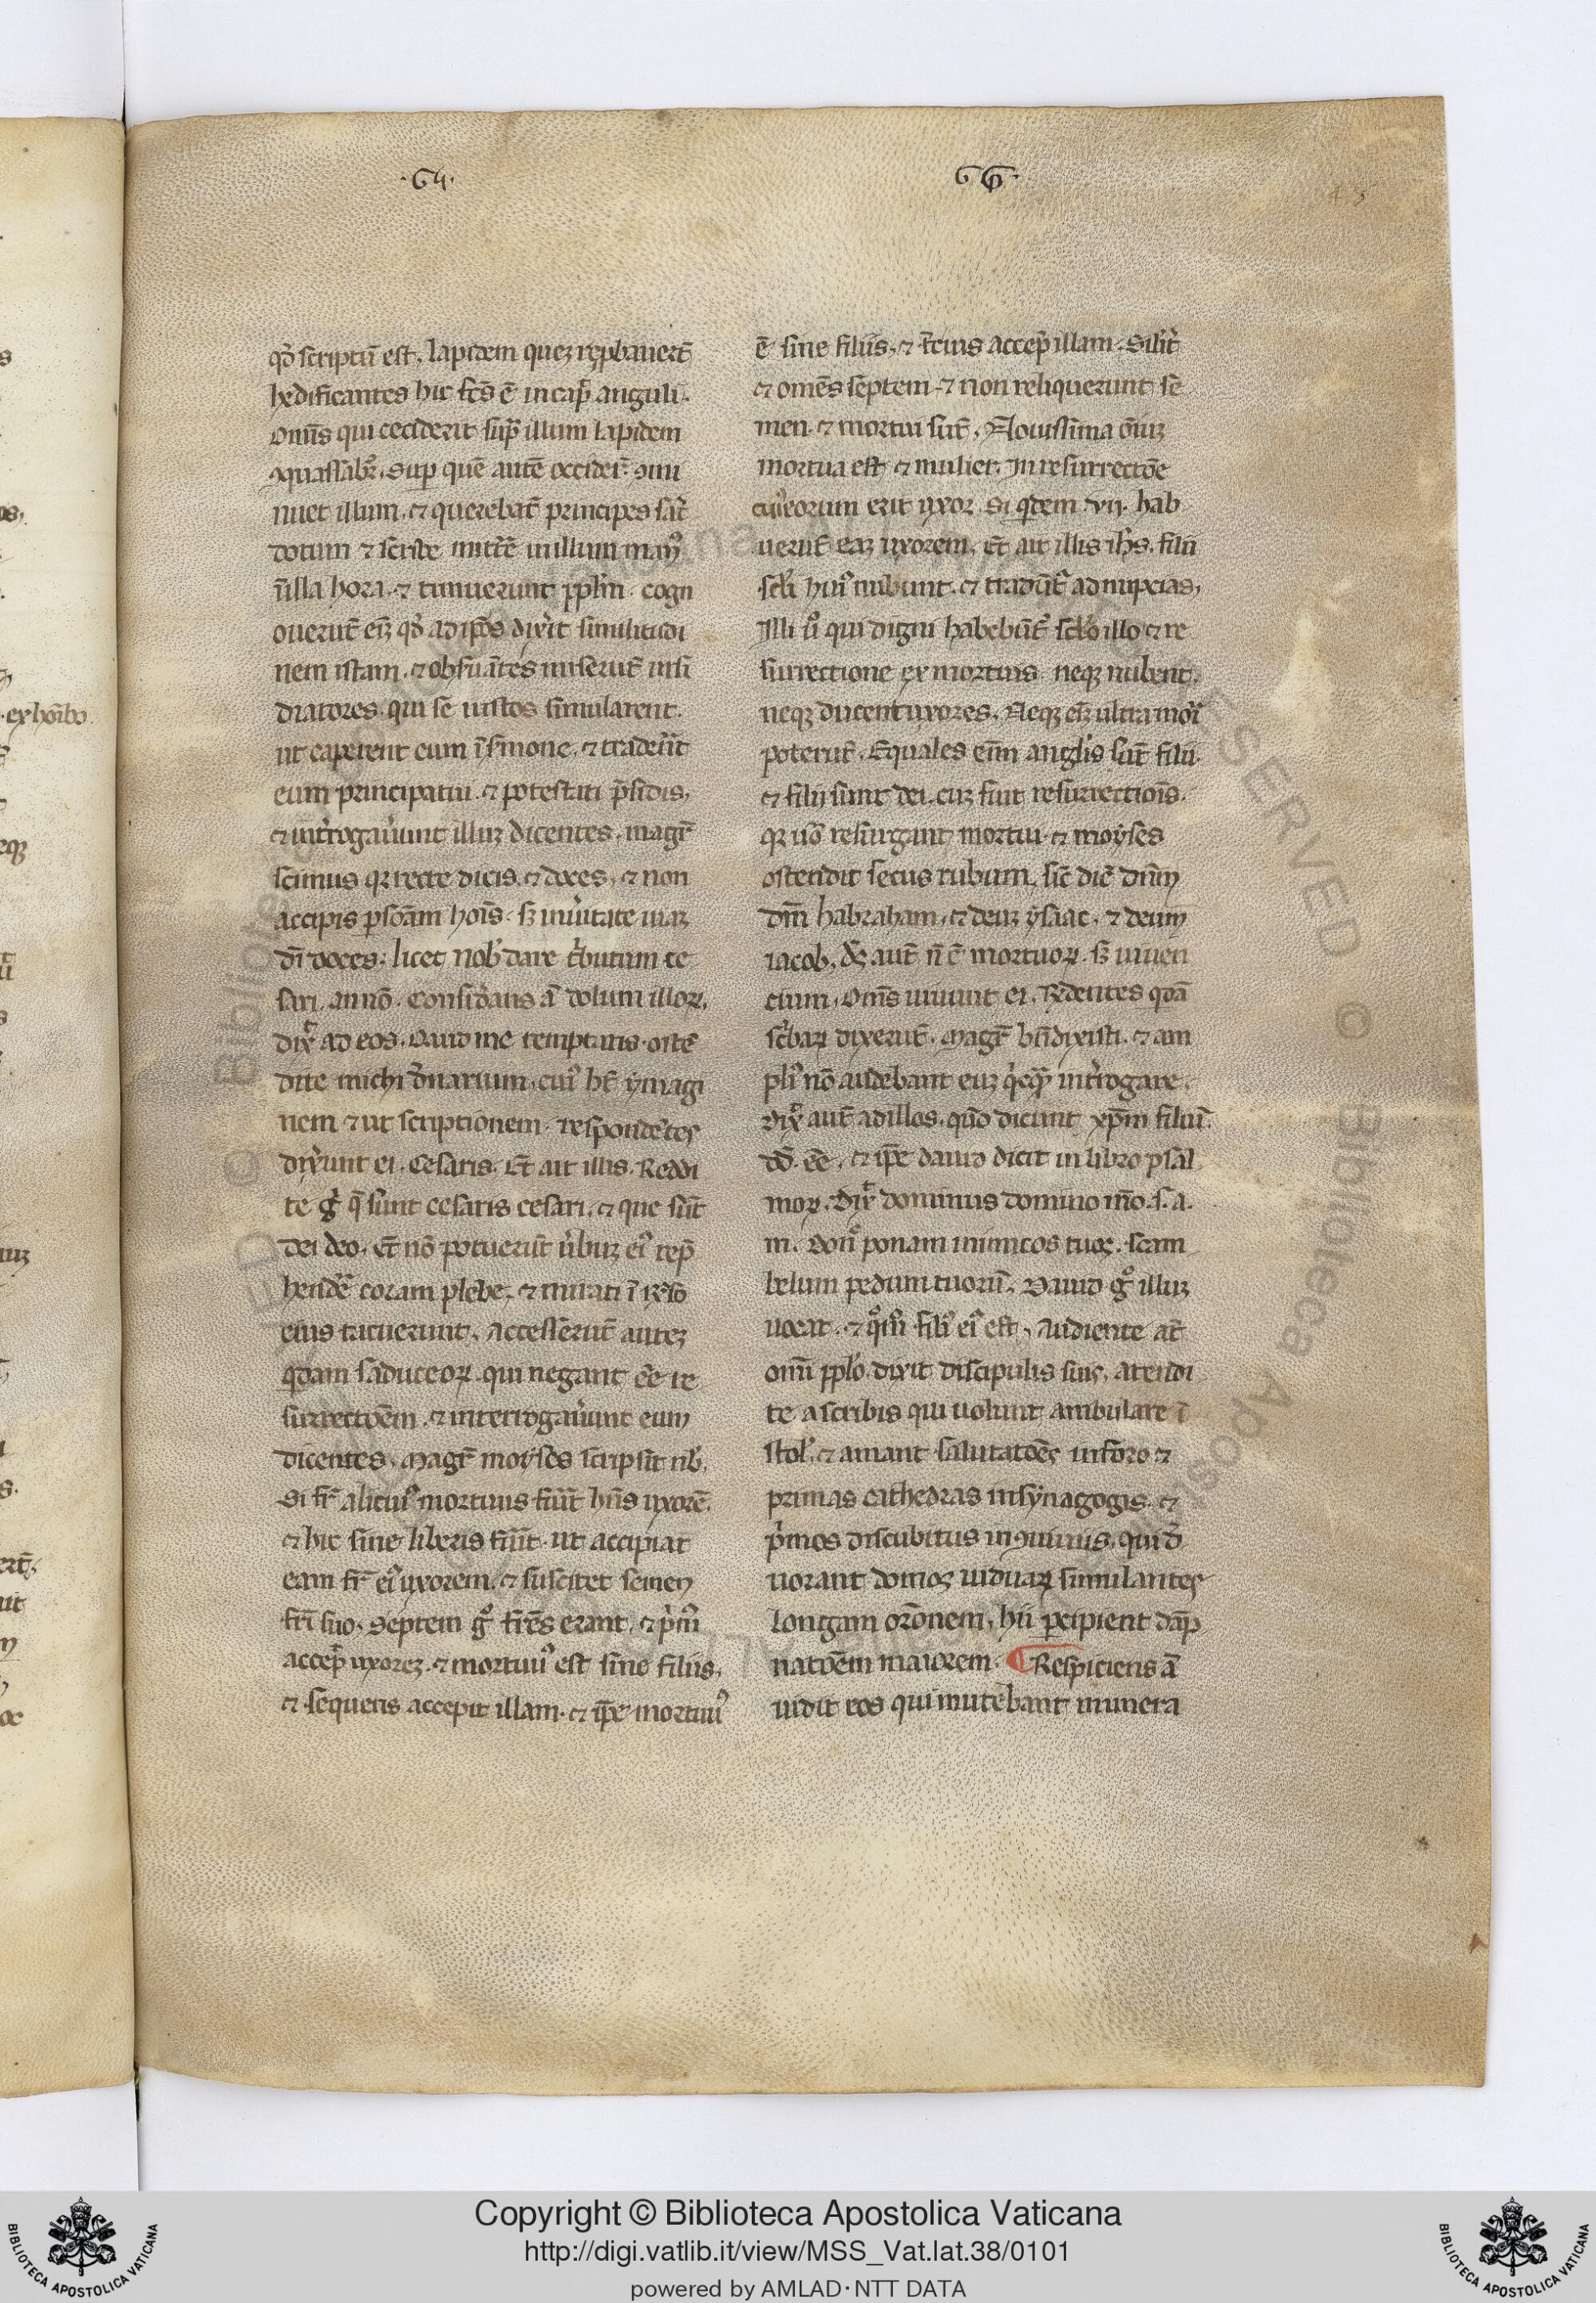 ·64·
66·
qd̄ scriptū est. lapidem quez rep̱bauert̄
hedificantes hic fcs̄ ē in cap̄ anguli.
omīs qui ceciderit sup̄ illum lapidem
ꝯquassabit᷑. sup̱ quē autē ceciderit ꝯmi
nuet illum. et querebāt principes sac̄
dotum ⁊ scribe mittē in illum man⁹
illa hora. et timuerunt pplm̄. cogn
overūt eīz qd̄ ad ip̄os dix̄it similitudi
nem istam. et obs̄uātes miserūt insi
diatores. qui se iustos simularent.
ut caperent eum ī s̄mone. et trader̄t
eum principatui. et potestati p̄sidis.
et int̄rogaūunt illuz dicentes. magr̄
scimus qz recte dicis. et doces. et non
accipis p̱sōam hoīs. sz in ūitate uiaz
dī doces: licet nob̄ dare t̄butum ce
sari. an nō. Consid̄ans ā dolum illoꝝ.
dix̄ ad eos. Quid me temptatis. ostē
dite michi d̄narium. cui⁹ ht̄ ymagi
nem et in scriptionem. respondētes
dix̄unt ei. Cesaris. Et ait illis. Reddi
te ḡ q̄ sunt cesaris cesari. et que sūt
dei deo. Et nō potuerūt ūbuz ei⁹ rep̄
hendē coram plebe. et mirati ī rn̄so
eius tacuerunt. Accesserūt autez
qdam saduceoꝝ. qui negant ēe re
surrectōem. et interrogaūunt eum
dicentes. Magr̄ moyses scripsit nb̄.
Si fr̄ alicui⁹ mortuus fūit hn̄s uxorē.
et hic sine liberis fūit. ut accipiat
eam fr̄ ei⁹ uxorem. et suscitet semen
fr̄i suo. Septem ḡ fr̄es erant. et p̄m⁹
accep̄ uxorez. et mortuu⁹ est sine filiis.
et sequens accepit illam. et ip̄e mortuu⁹
ē sine filiis. et t̄cius accep̄ illam. Silit̄
et omēs septem. et non reliquerunt se
men. et mortui sūt. Novissima ōiuz
mortua est et mulier. In resurrectōe
cui⁹ eorum erit uxor. Si qdem .vii. hab
uerūt eaz uxorem. Et ait illis ih̄s. filii
scl̄i hui⁹ nubunt. et tradūt᷑ ad nupcias.
Illi ū qui digni habebūt᷑ scl̄o illo et re
surrectione ex mortuis. neqz nubent.
neqz ducent uxores. Neqz eīz ultra mori
poterūt. Equales enim angl̄is sūt filii.
et filii sunt dei. cuz sint resurrectiōis.
qz ūo resurgant mortui. et moyses
ostendit secus rubum. sic̄ dic̄ dn̄m
dm̄ habraham. et deuz ysaac. et deum
iacob. Ds̄ aut̄ n̄ ē mortuoꝝ. sz uiuen
cium. Omīs uiuunt ei. Rn̄dentes qdā
sc̄baꝝ dixerūt. Magr̄ bn̄ dixisti. et am
pli⁹ nō audebant euz qcqꝫ int̄rogare.
Dix̄ aut̄ ad illos. quō dicunt xpm̄ filiū
dd̄. ēe. et ip̄e dauid dicit in libro psal
moꝝ. Dix̄ dominus domino mō. s. a.
m. don̄ ponam inimicos tuos. scam
bellum pedum tuorū. Dauid ḡ illuz
uocat. et qm̄o fili⁹ ei⁹ est. Audiente āt
omī pplo. dixit discipulis suis. Atendi
te a scribis qui uolunt ambulare ī
stol̄. et amant salutatōes in foro et
primas cathedras in synagogis. et
p̄mos discubitus in ꝯuiuiis. qui d̄
uorant domos uiduaꝝ simulantes
longam orōnem. hii p̱cipient dāp
natōem maiorem. ¶ Respiciens ā
uidit eos qui mittebant munera
Copyright © Biblioteca Apostolica Vaticana
http://digi.vatlib.it/view/MSS_Vat.lat.38/0101
powered by AMLAD·NTT DATA
BIBLIOTECA APOSTOLICA VATICANA
BIBLIOTECA APOSTOLICA VATICANA